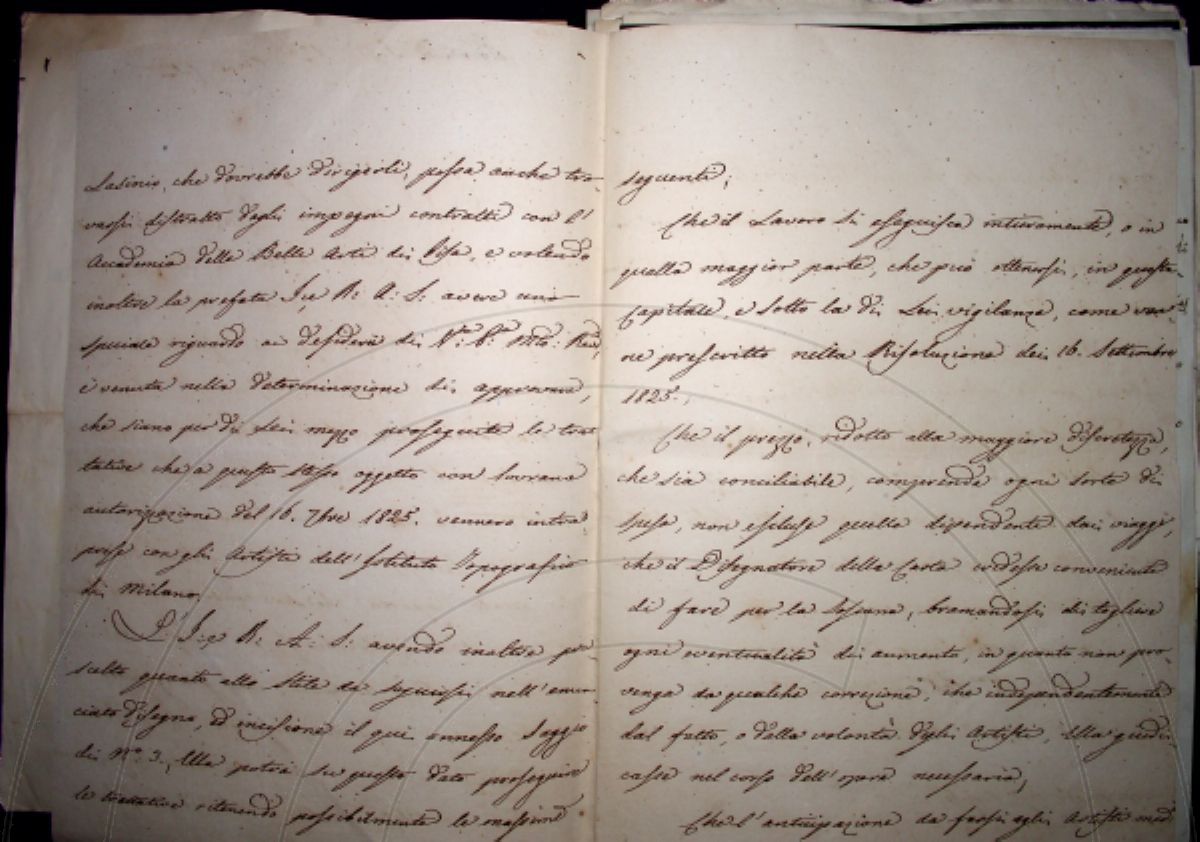 Lasinio, che dovrebbe dirigerli, possa anche tro-
varsi distratto dagli impegni contratti con l'
Accademia delle Belle Arti di Pisa, e volendo
inoltre la prefata I. e R. A. S. avere uno
speciale riguardo ai desiderii di V.ª P.ª Molto Rev.,
è venuta nella determinazione di approvare,
che siano per di Lei mezzo proseguite le trat-
tative che a questo stesso oggetto con sovrana
autorizzazione del 16. 7bre 1825. vennero intra-
prese con gli Artisti dell'Istituto Topografico
di Milano.
L'I. e R. A. S. avendo inoltre pre-
scelto quanto allo stile da seguirsi nell'enun-
ciato disegno, ed incisione il qui annesso Saggio
di Nº 3., Ella potrà su questo dato proseguire
le trattative ritenendo possibilmente le massime
seguenti;
Che il Lavoro si eseguisca intieramente, o in
quella maggior parte, che può ottenersi, in questa
Capitale, e sotto la di Lei vigilanza, come ven-
ne prescritto nella Risoluzione dei 16. Settembre
1825.;
Che il prezzo, ridotto alla maggiore discretezza,
che sia conciliabile, comprenda ogni sorte di
spese, non escluse quelle dipendenti dai viaggi,
che il Disegnatore della Carta credesse conveniente
di fare per la Toscana, bramandosi di togliere
ogni eventualità di aumento, in quanto non pro-
venga da qualche correzione, che independentemente
dal fatto, o dalla volontà degli Artisti, Ella giudi-
casse nel corso dell'opera necessaria;
Che l'anticipazione da farsi agli Artisti med